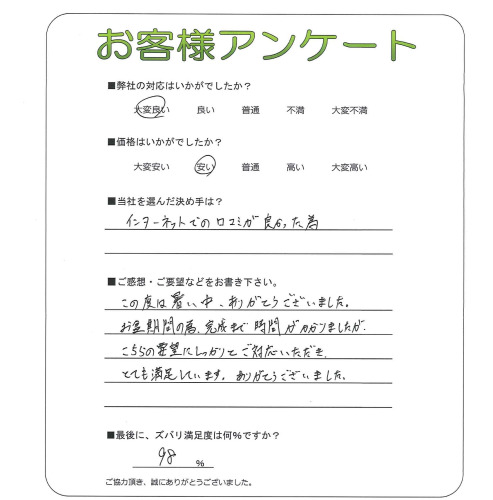 お客様アンケート
■弊社の対応はいかがでしたか？
大変良い 良い 普通 不満 大変不満
■価格はいかがでしたか？
大変安い 安い 普通 高い 大変高い
■当社を選んだ決め手は？
インターネットでの口コミが良かった為
■ご感想・ご要望などをお書き下さい。
この度は暑い中、ありがとうございました。
お盆期間の為、完成まで時間がかかりましたが、
こちらの要望にしっかりとご対応いただき、
とても満足しています。ありがとうございました。
■最後に、ズバリ満足度は何%ですか？
98 %
ご協力頂き、誠にありがとうございました。